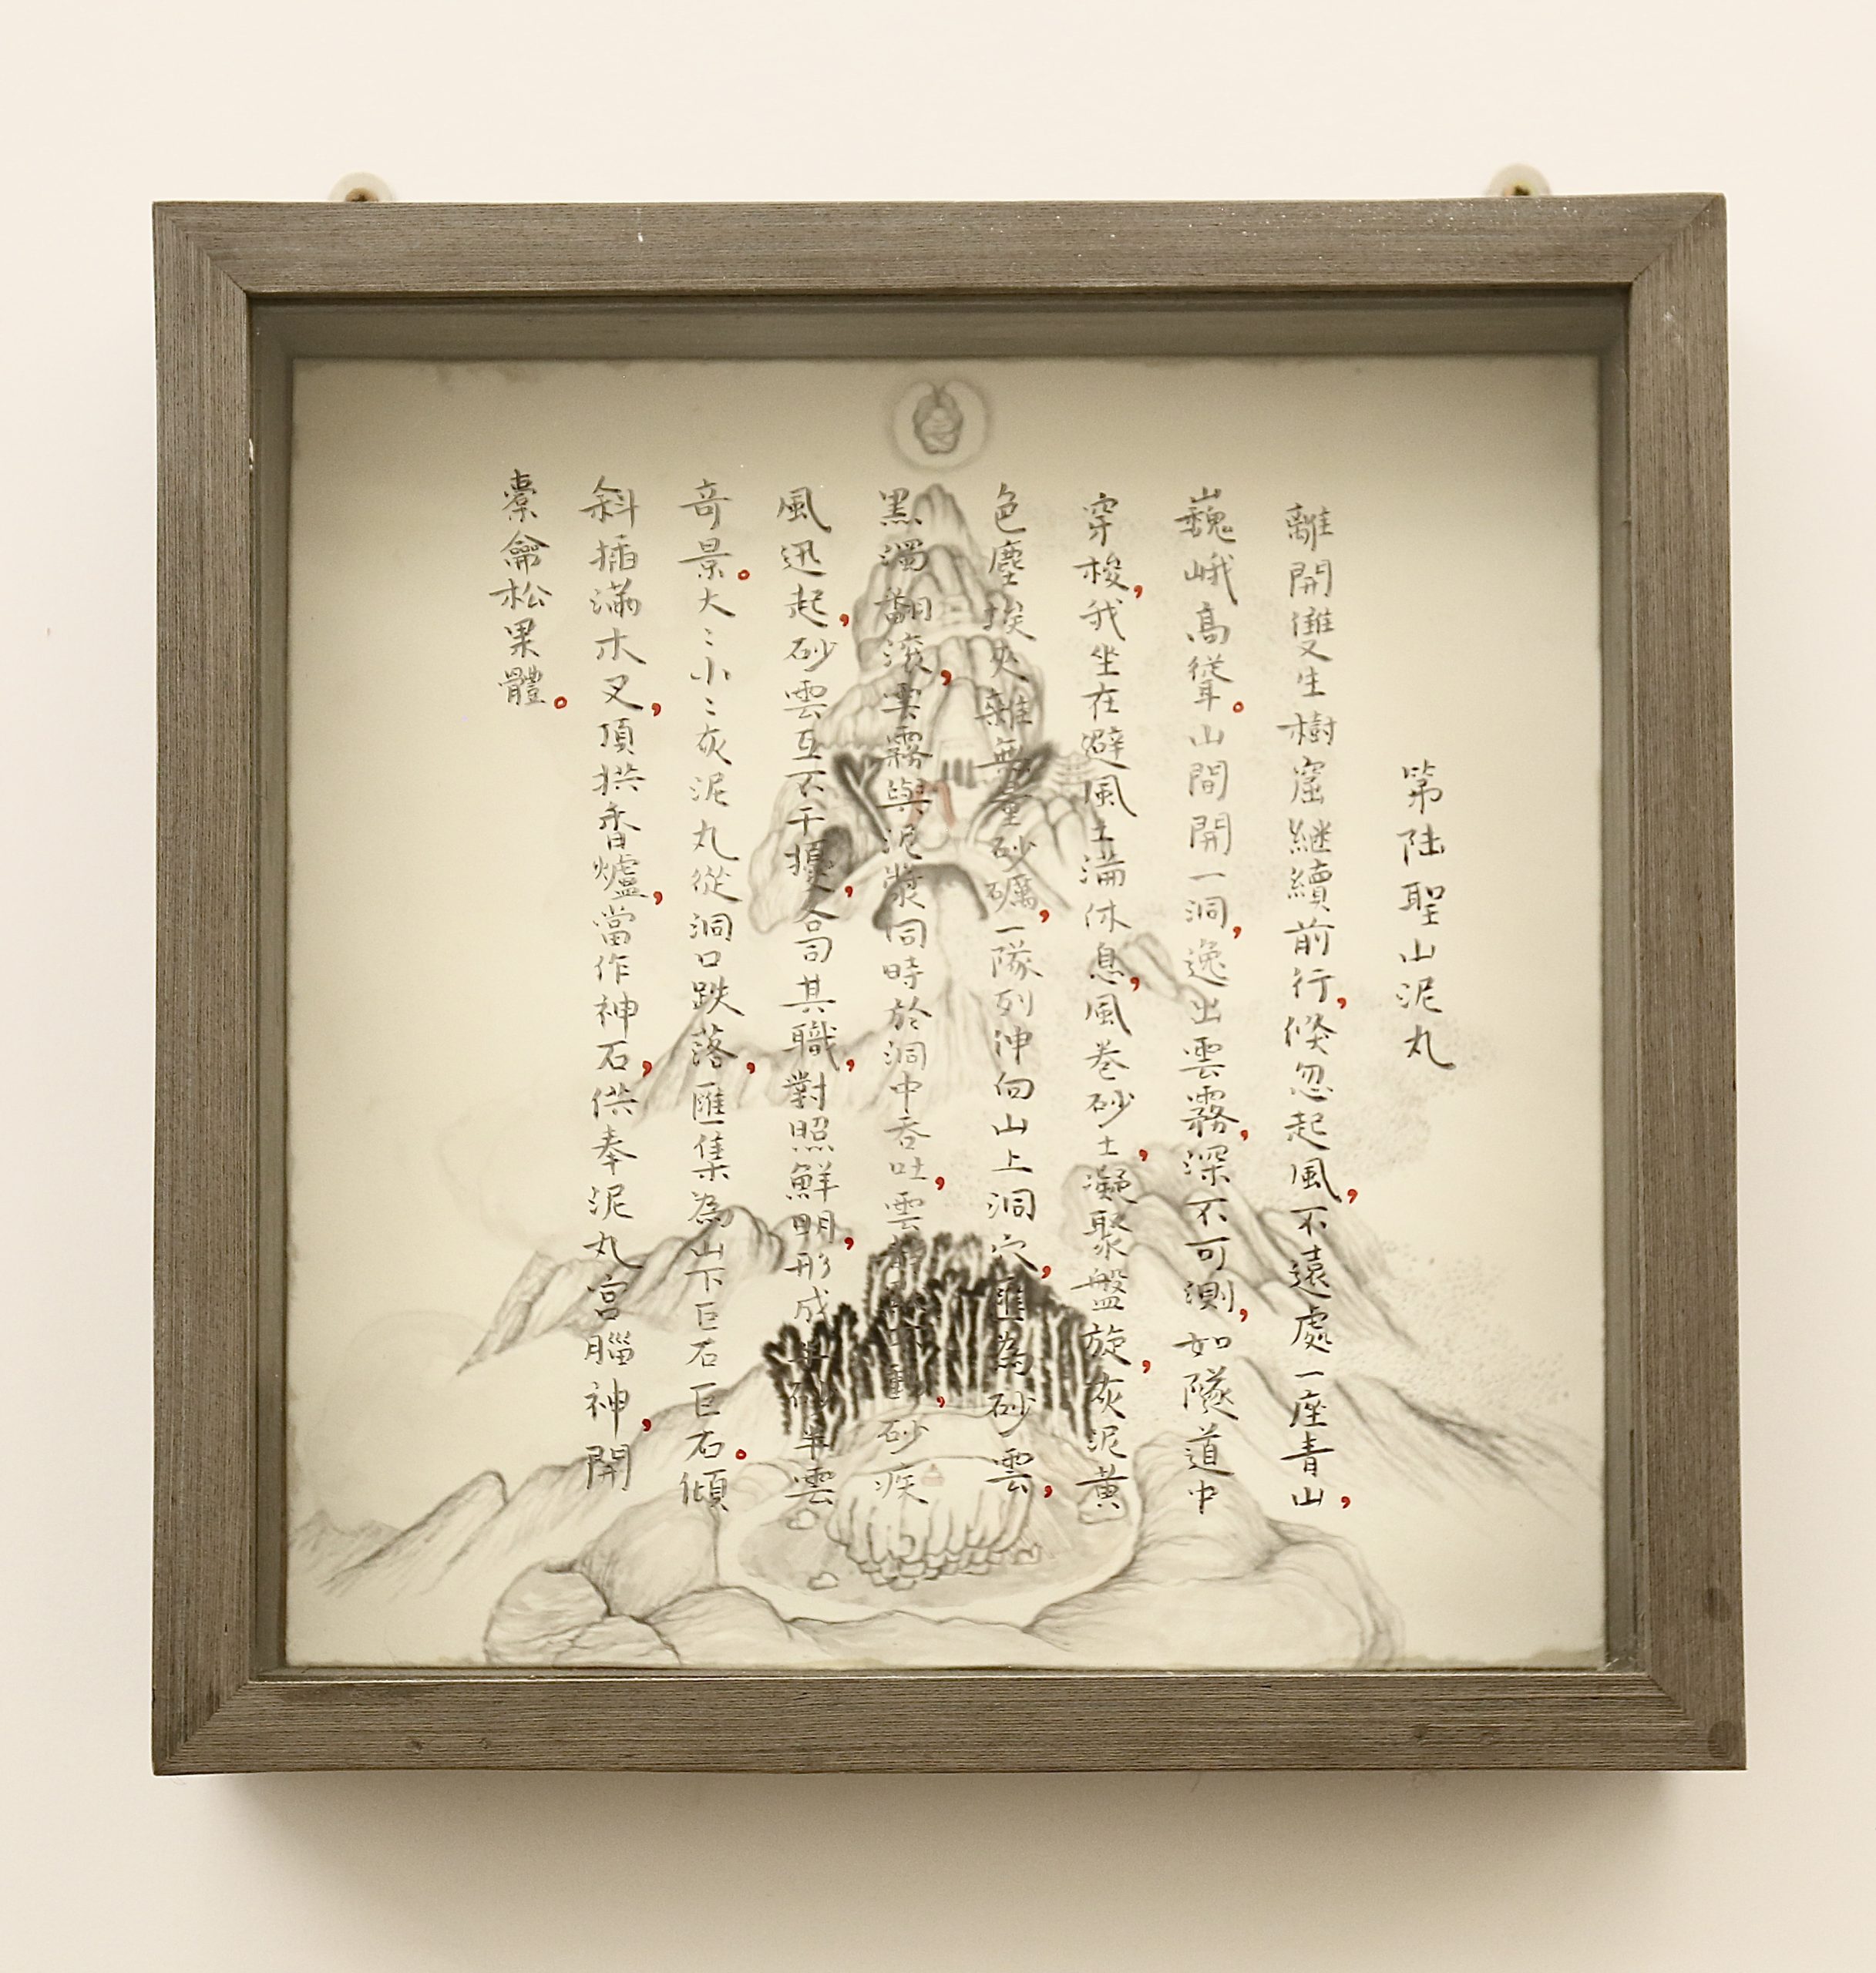 第陸聖山泥丸
離開雙生樹窟繼續前行，倏忽起風，不遠處一座青山，
巍峨高聳。山間開一洞，逸出雲霧，深不可測，如隧道中
穿梭，我坐在避風土滿休息，風卷砂土，凝聚盤旋，灰泥黃
色塵埃夾雜無量砂礪，一隊列沖向山上洞穴，匯為砂雲，
黑濁翻滾，雲霧與泥漿同時於洞中吞吐，雲動，砂疾
風迅起，砂雲互不干擾，各司其職，對照鮮明，形成半砂半雲
奇景。大〻小〻灰泥丸從洞口跌落，匯集為山下巨石巨石。傾
斜插滿木叉，頂拱香爐，當作神石，供奉泥丸宮腦神，開
橐龠松果體。